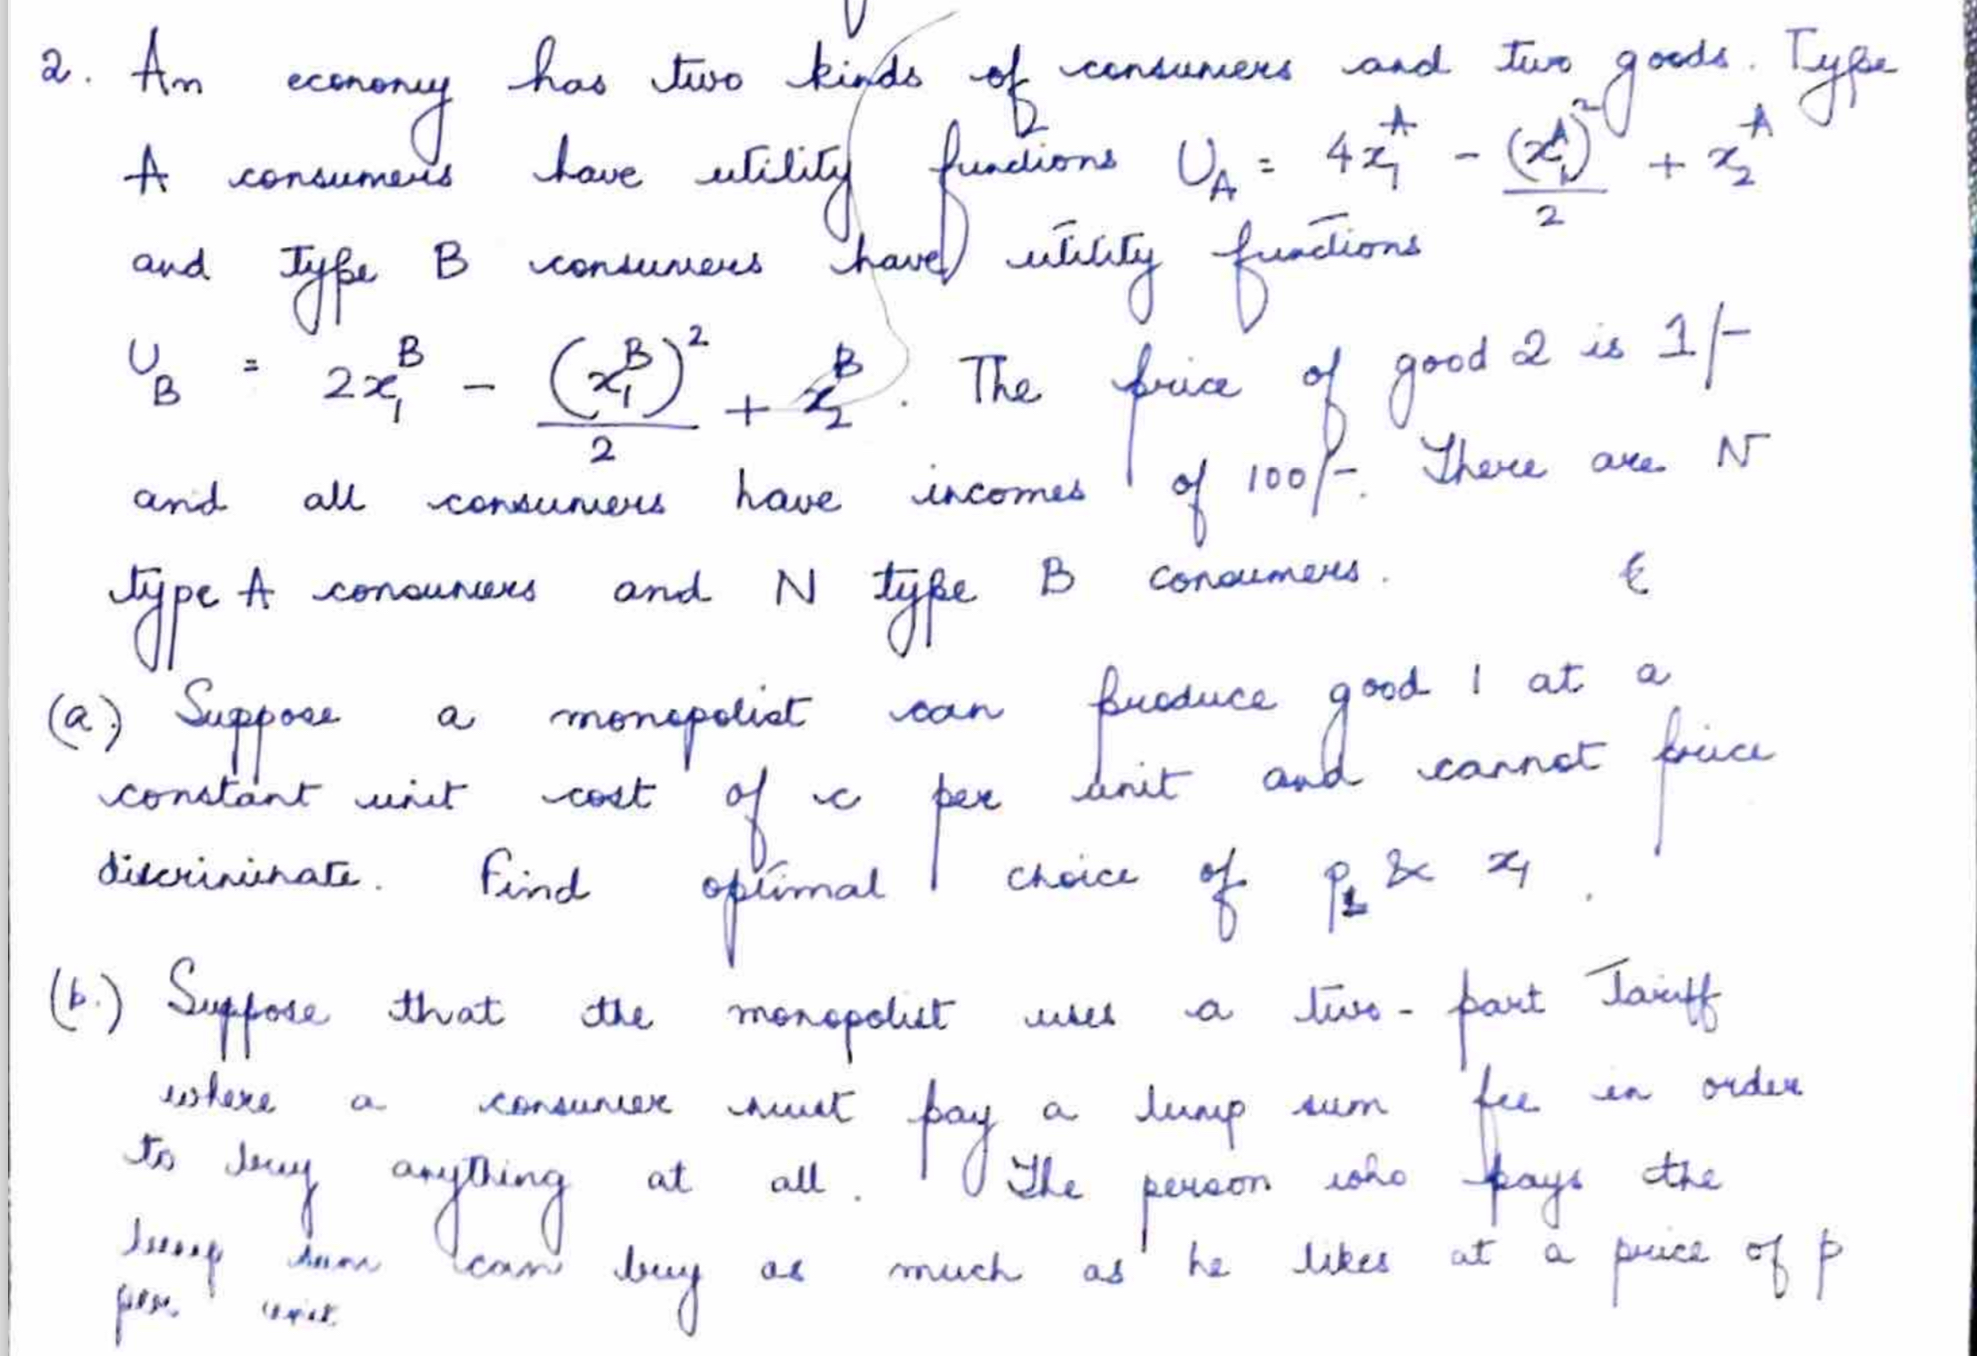 2. An economy has two kinds of consumers and two goods. Type
A consumers have utility functions U_A = 4x_1^A - (x_1^A)^2/2 + x_2^A
and Type B consumers have utility functions
U_B = 2x_1^B - (x_1^B)^2/2 + x_2^B. The price of good 2 is 1/-
and all consumers have incomes of 100/-. There are N
type A consumers and N type B consumers.
(a) Suppose a monopolist can produce good 1 at a
constant unit cost of c per unit and cannot price
discriminate. Find optimal choice of p_1 & x_1.
(b.) Suppose that the monopolist uses a two-part Tariff
where a consumer must pay a lump sum fee in order
to buy anything at all. The person who pays the
lump sum can buy as much as he likes at a price of p
per unit.